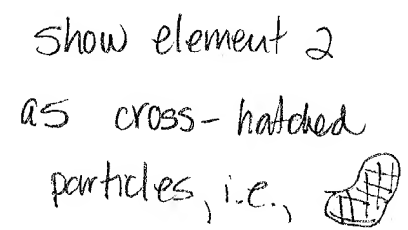 show element 2
as cross-hatched
particles, i.e.,